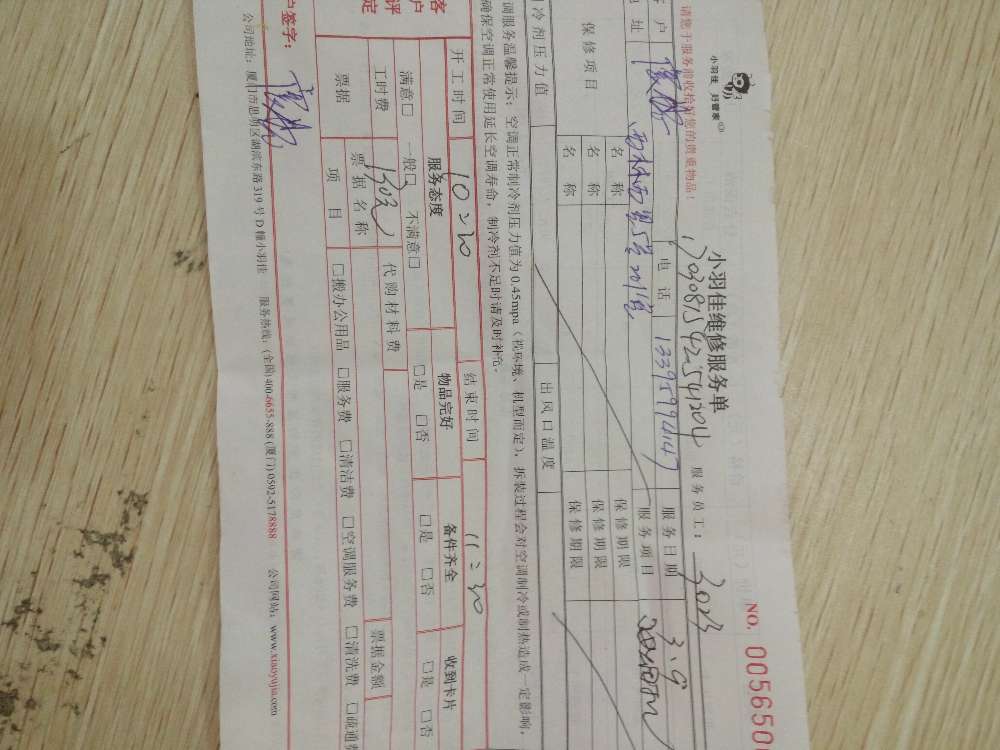 小羽佳 好管家
请您于服务前收拾好您的贵重物品!
小羽佳维修服务单
NO. 005650
服务员工:
户
电话 13395994147 服务日期 3.9
地址 服务项目
保修项目 名称 保修期限
名称 保修期限
名称 保修期限
制冷剂压力值 出风口温度
调服务温馨提示:空调正常制冷剂压力值为0.45mpa(视环境、机型而定),拆装过程会对空调制冷或制热造成一定影响,
确保空调正常使用延长空调寿命,制冷剂不足时请及时补充。
开工时间 10:30 结束时间 11:30
客户评定
服务态度 物品完好 备件齐全 收到卡片
满意□ 一般□ 不满意□ □是 □否 □是 □否 □是 □否
工时费 130元 代购材料费
票据 票据名称 票据金额
项目 □搬办公用品 □服务费 □清洁费 □空调服务费 □清洗费 □疏通费
户签字:
公司地址:厦门市思明区湖滨东路319号D幢小羽佳 服务热线:(全国)400-6655-888 (厦门)0592-5178888 公司网站:www.xiaoyujia.com